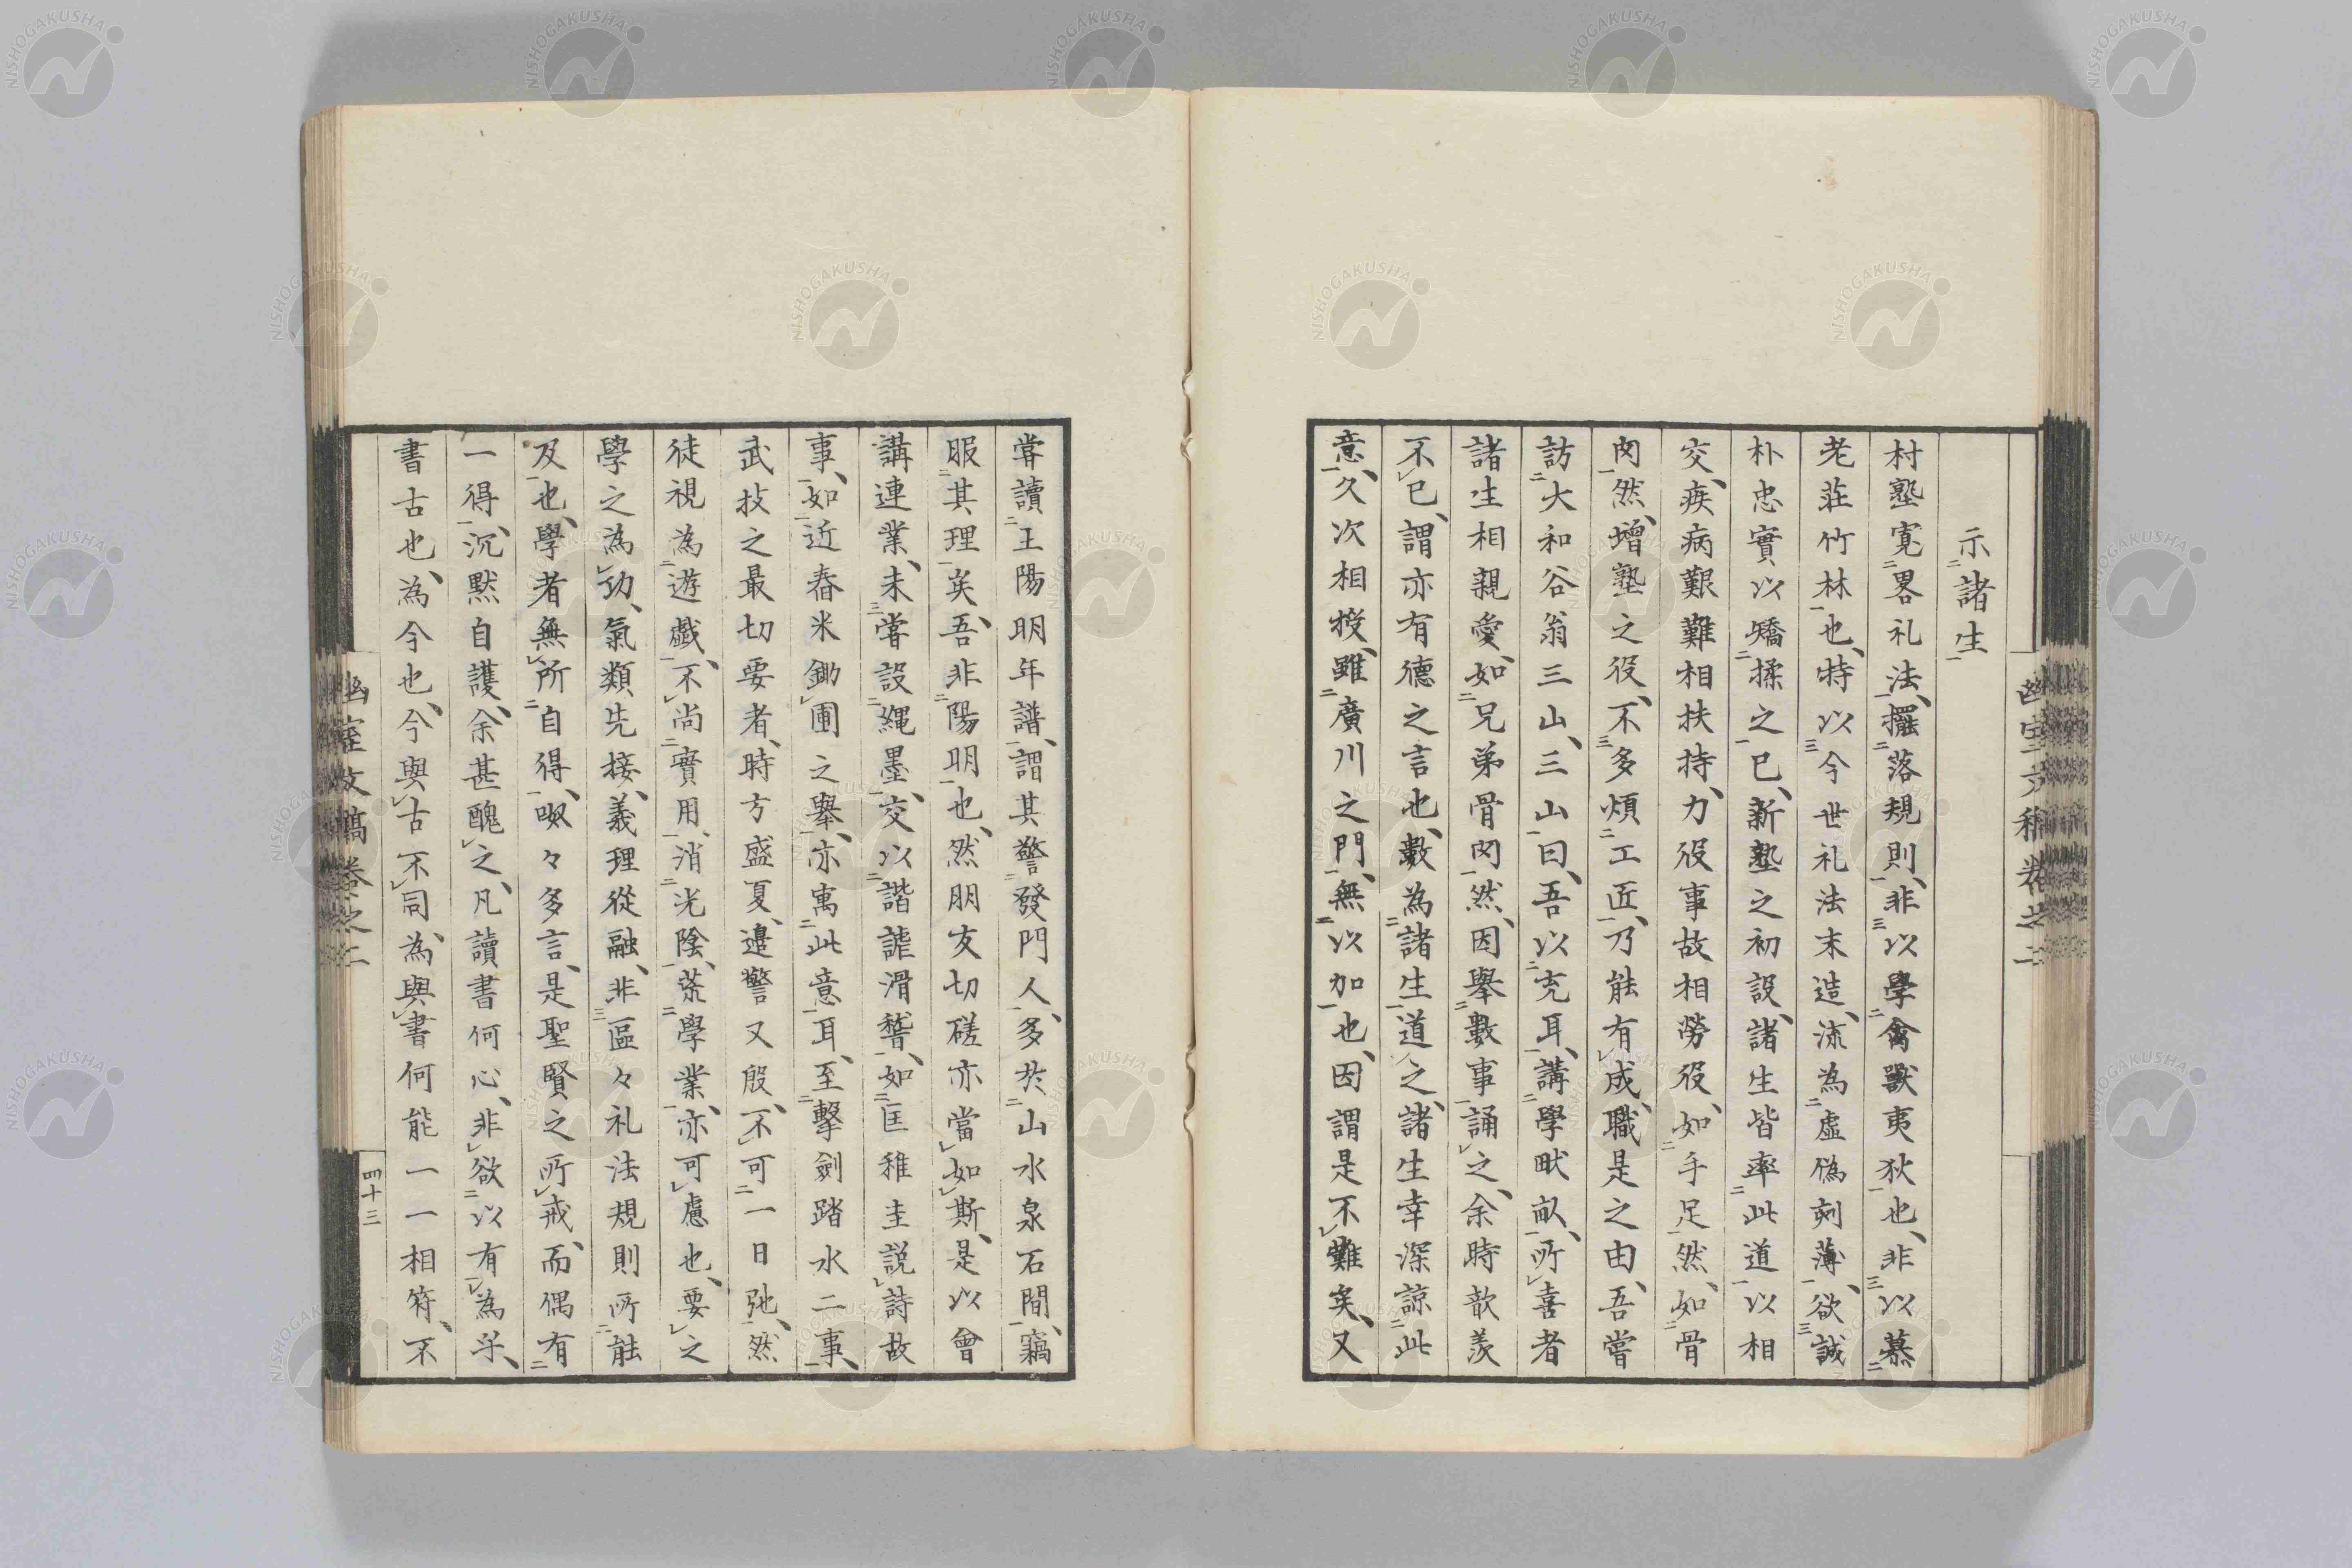 示諸生
村塾寛畧礼法、擺落規則、非以學禽獸夷狄也、非以慕
老荘竹林也、特以今世礼法末造、流為虛偽刻薄、欲誠
朴忠實以矯揉之已、新塾之初設、諸生皆率此道以相
交、疾病艱難相扶持、力役事故相勞役、如手足然、如骨
肉然、增塾之役、不多煩工匠、乃能有成、職是之由、吾嘗
訪大和谷翁三山、三山曰、吾以充耳、講學畎畝、所喜者
諸生相親愛、如兄弟骨肉然、因舉數事誦之、余時歆羨
不已、謂亦有德之言也、數為諸生道之、諸生幸深諒此
意、久次相授、雖廣川之門、無以加也、因謂是不難矣、又
嘗讀王陽明年譜、謂其警發門人、多於山水泉石間、竊
服其理矣、吾非陽明也、然朋友切磋亦當如斯、是以會
講連業、未嘗設繩墨、交以諧謔滑稽、如匡稚圭説詩故
事、如近舂米鋤圃之舉、亦寓此意耳、至擊劍踏水二事、
武技之最切要者、時方盛夏、邊警又殷、不可一日弛、然
徒視為遊戲、不尚實用、消光陰、荒學業、亦可慮也、要之
學之為功、氣類先接、義理從融、非區々礼法規則所能
及也、學者無所自得、呶々多言、是聖賢之所戒、而偶有
一得、沉黙自護、余甚醜之、凡讀書何心、非欲以有為乎、
書古也、為今也、今與古不同、為與書何能一一相符、不
幽室文稿卷之二
四十三